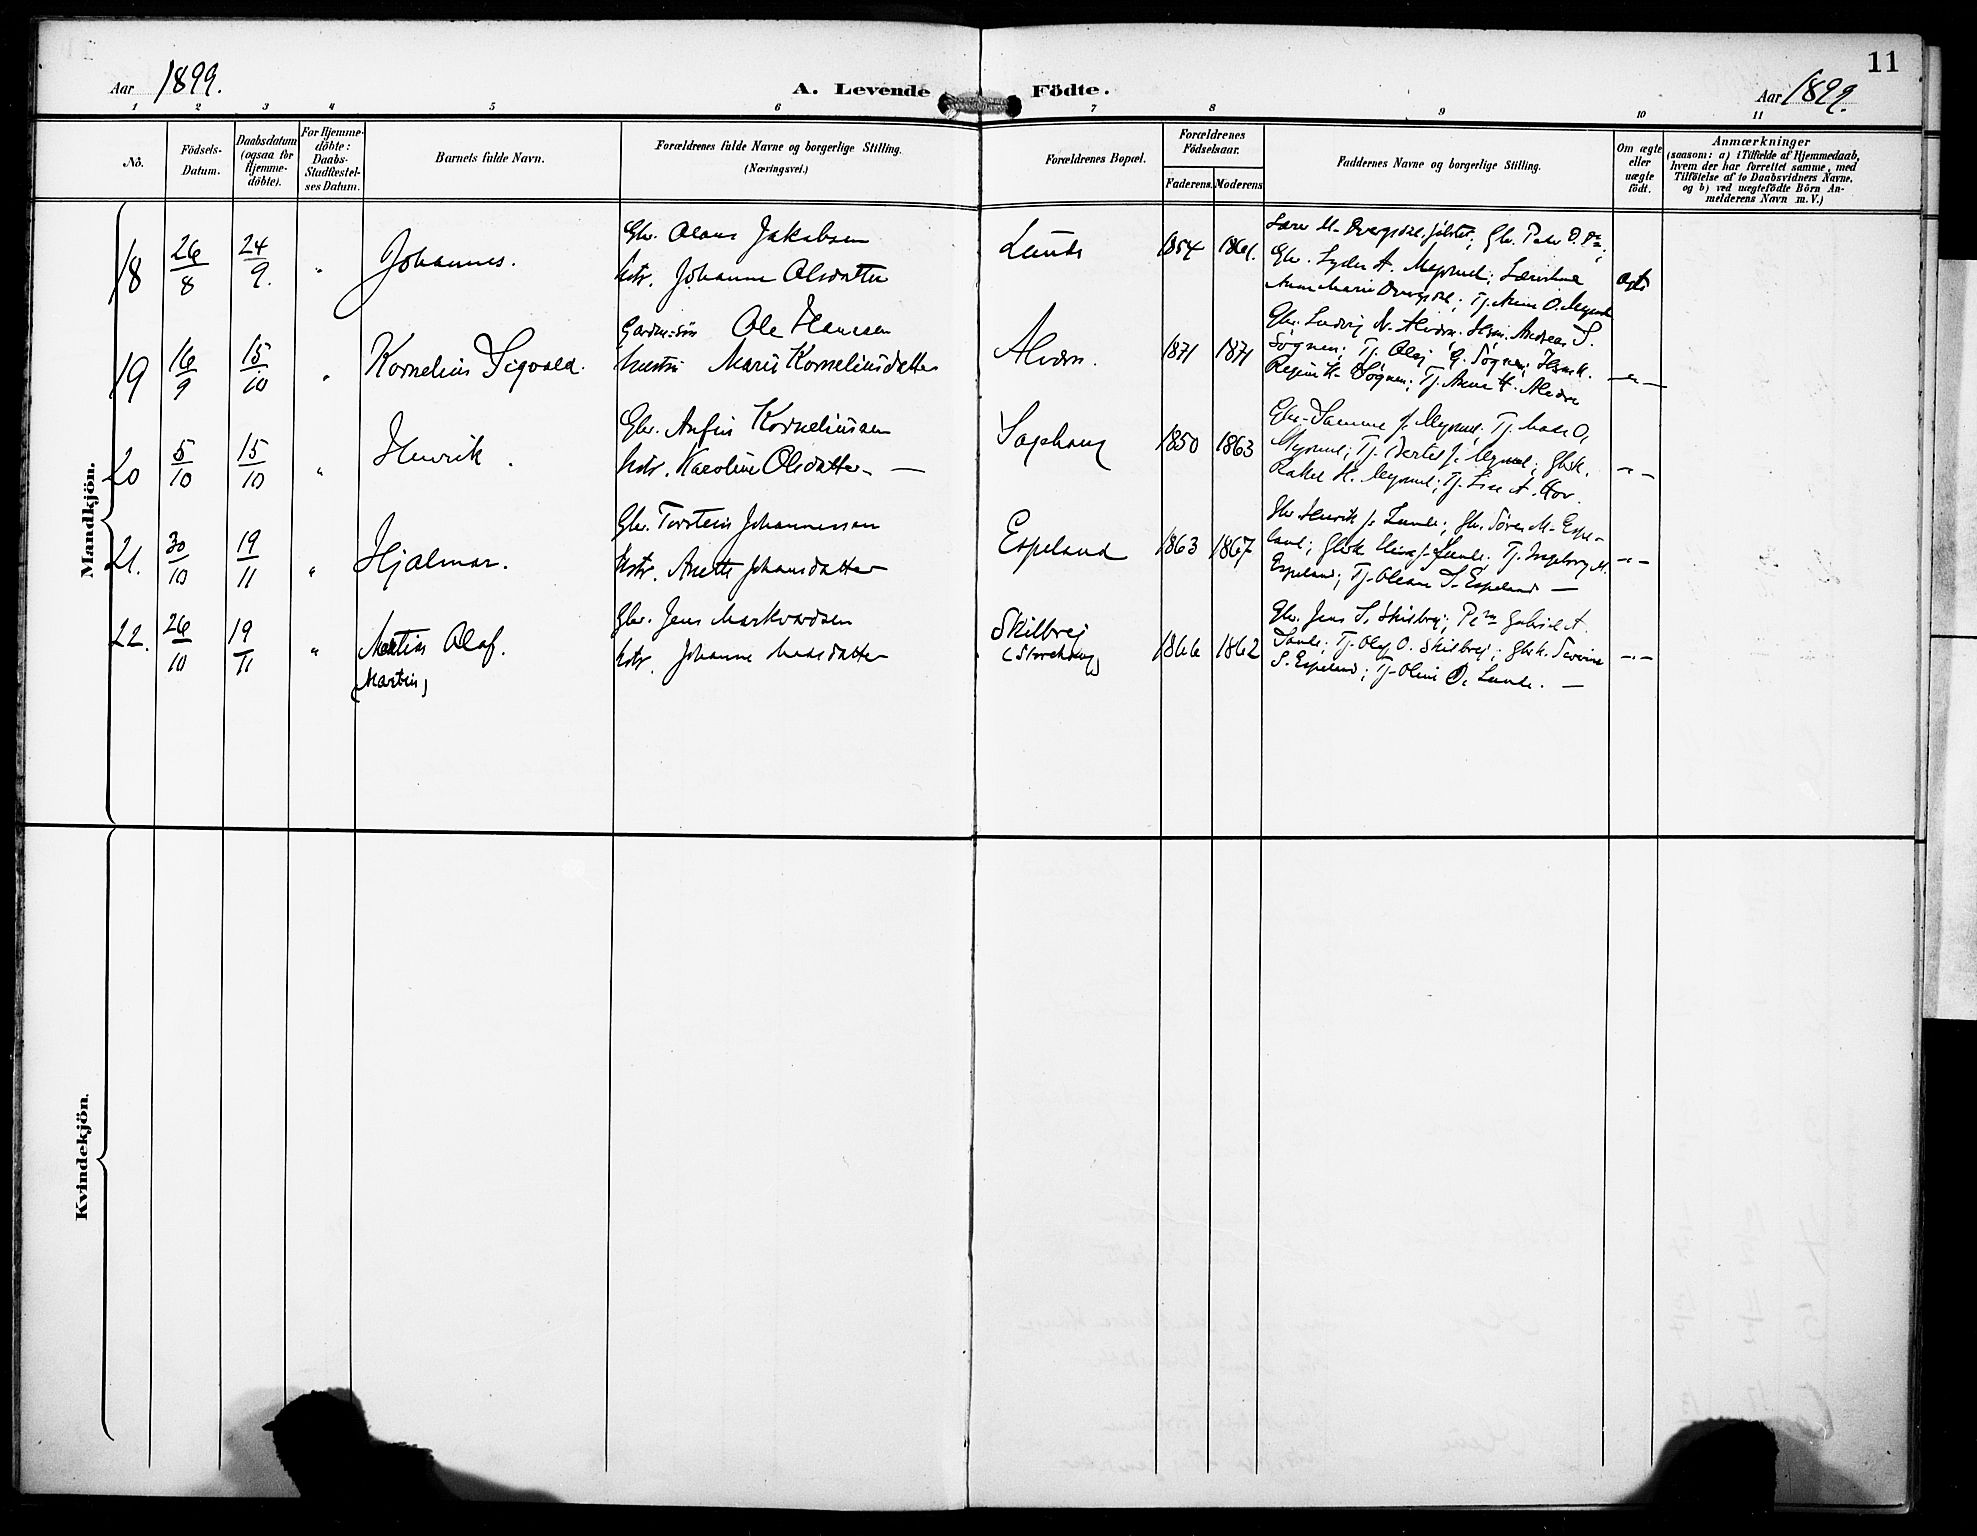 11
Aar 1899.
A. Levende Födte.
Aar 1899.
1 2 3 4 5 6 7 8 9 10 11
No.
Födsels-
Datum.
Daabsdatum
(ogsaa for
Hjemme-
döbte).
For Hjemme-
döbte:
Daabs-
Stadfæstel-
ses Datum.
Barnets fulde Navn.
Forældrenes fulde Navne og borgerlige Stilling.
(Næringsvei.)
Forældrenes Bopæl.
Forældrenes
Födselsaar.
Faderens. Moderens
Faddernes Navne og borgerlige Stilling.
Om ægte
eller
uægte
födt.
Anmærkninger
(saasom: a) i Tilfælde af Hjemmedaab,
hvem der har forrettet samme, med
Tilföielse af to Daabsvidners Navne,
og b) ved uægtefödte Börn An-
melderens Navn m. V.)
Mandkjön.
18 26/8 24/9. " Johannes.
Gbr. Olaus Jakobsen
Hstr. Johanne Olsdatter
Lunde 1854 1861.
Gbr. Lyder A. Myrmel; Lærerinde
ægte
19 16/9 15/10 " Kornelius Sigvald.
Gaardm.søn Ole Hansen
Hustru Marie Korneliusdatter
Alvøen. 1871 1871
Gbr. Ludvig N. Andreas S.
Sögnen; Tj. Olaf G. Sögnen;
Sögnen; Tj. Anna H.
— " —
20 5/10 15/10 " Henrik.
Gbr. Anfin Korneliussen
Hstr. Karoline Olsdatter —
Sagehaug 1850 1863
Gbr. Samme J. Myrmel; Tj. Mads O.
Myrmel; Tj. Bertel J. Myrmel; Gbsk.
Rakel H. Myrmel; Tj. Lise A. Hov.
— " —
21. 30/10 19/11 " Hjalmar.
Gbr. Torstein Johannessen
Hstr. Anette Johansdatter
Espeland 1863 1867
Gbr. Henrik J. Lunde; Gbr. Sören M. Espe-
land; Gbsk. J. Lunde; Tj. Ingeborg M.
Espeland; Tj. Oleane S. Espeland —
— " —
22. 26/10 19/11 " Martin Olaf.
(Martin)
Gbr. Jens Markvardsen
Hstr. Johanne Madsdatter
Skilbrej
(Storehaug)
1866 1862
Gbr. Jens S. Skilbrej; Pe m Gabriel A.
Tj. Olaf O. Skilbrej; Gbsk. Severine
S. Espeland; Tj. Oline O. Lunde. —
— " —
Kvindekjön.